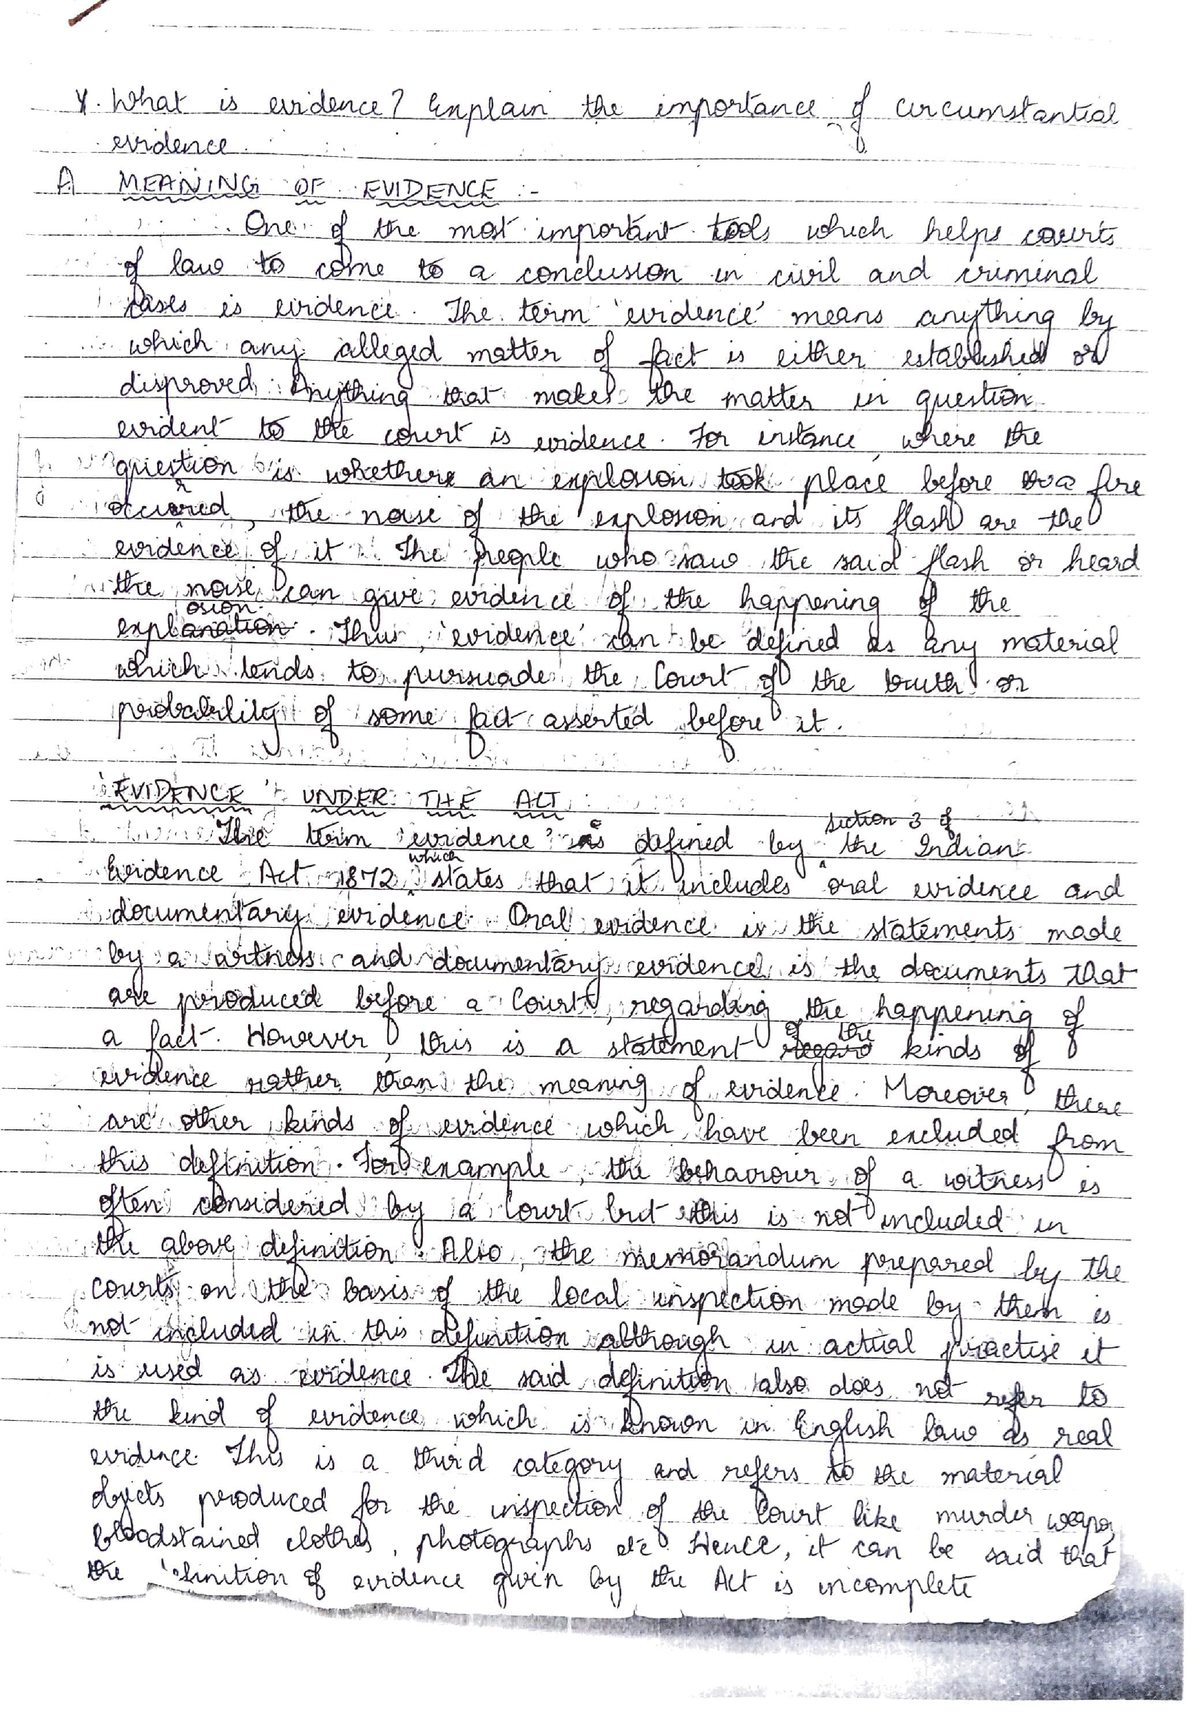 Y. What is evidence? Explain the importance of circumstantial
evidence.
A MEANING OF EVIDENCE :-
One of the most important tools which helps courts
of law to come to a conclusion in civil and criminal
cases is evidence. The term 'evidence' means anything by
which any alleged matter of fact is either established or
disproved. Anything that makes the matter in question
evident to the court is evidence. For instance, where the
question is whether an explosion took place before a fire
occurred, the noise of the explosion and its flash are the
evidence of it. The people who saw the said flash or heard
the noise can give evidence of the happening of the
explosion. Thus, 'evidence' can be defined as any material
which tends to pursuade the Court of the truth or
probability of some fact asserted before it.
'EVIDENCE' UNDER THE ACT
The term 'evidence' is defined by section 3 of the Indian
Evidence Act, 1872 which states that it includes oral evidence and
documentary evidence. Oral evidence is the statements made
by a witness and documentary evidence is the documents that
are produced before a Court, regarding the happening of
a fact. However, this is a statement of the kinds of
evidence rather than the meaning of evidence. Moreover, there
are other kinds of evidence which have been excluded from
this definition. For example, the behaviour of a witness is
often considered by a Court but this is not included in
the above definition. Also, the memorandum prepared by the
courts on the basis of the local inspection made by them is
not included in this definition although in actual practise it
is used as evidence. The said definition also does not refer to
the kind of evidence which is known in English law as real
evidence. This is a third category and refers to the material
objects produced for the inspection of the Court like murder weapon,
bloodstained clothes, photographs etc. Hence, it can be said that
the 'efinition of evidence given by the Act is incomplete